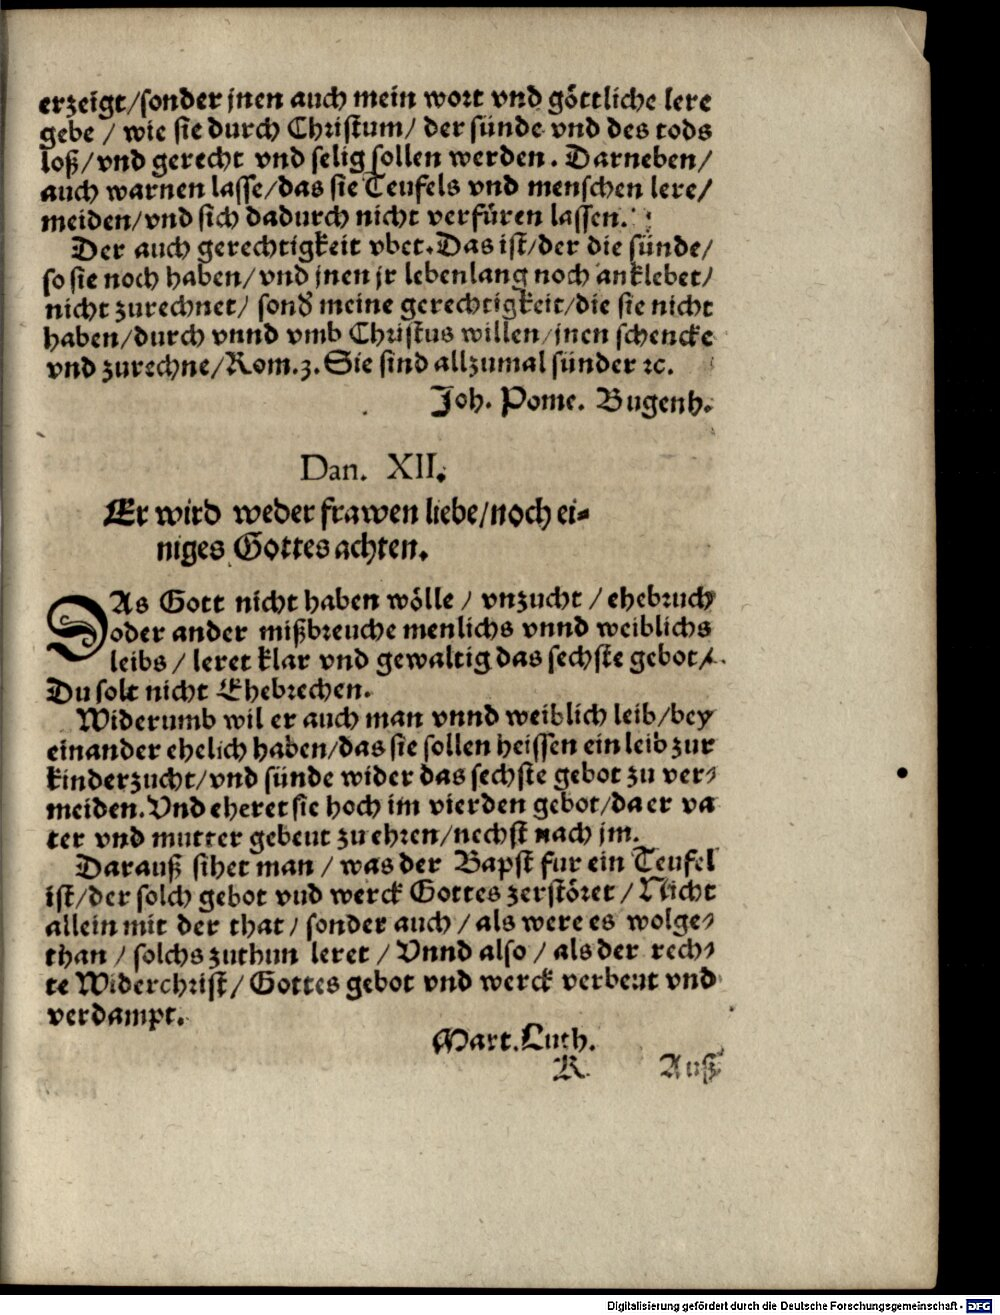 erzeigt/sonder jnen auch mein wort vnd göttliche lere
gebe / wie sie durch Christum/ der sünde vnd des tods
loß/vnd gerecht vnd selig sollen werden. Darneben/
auch warnen lasse/das sie Teufels vnd menschen lere/
meiden/vnd sich dadurch nicht verfüren lassen.
Der auch gerechtigkeit vbet. Das ist/der die sünde/
so sie noch haben/vnd jnen jr lebenlang noch anklebet/
nicht zurechnet/ sonď meine gerechtigkeit/die sie nicht
haben/durch vnnd vmb Christus willen/jnen schencke
vnd zurechne/Rom.3. Sie sind allzumal sünder ꝛc.
Joh. Pome. Bugenh.
Dan. XII.
Er wird weder frawen liebe/noch ei-
niges Gottes achten.
DAs Gott nicht haben wölle / vnzucht / ehebruch
oder ander mißbreuche menlichs vnnd weiblichs
leibs / leret klar vnd gewaltig das sechste gebot/
Du solt nicht Ehebrechen.
Widerumb wil er auch man vnnd weiblich leib/bey
einander ehelich haben/das sie sollen heissen ein leib zur
kinderzucht/vnd sünde wider das sechste gebot zu ver-
meiden. Vnd eheret sie hoch im vierden gebot/da er va
ter vnd mutter gebeut zu ehren/nechst nach jm.
Darauß sihet man / was der Bapst fur ein Teufel
ist/der solch gebot vnd werck Gottes zerstöret / Nicht
allein mit der that / sonder auch / als were es wolge-
than / solchs zuthun leret / Vnnd also / als der rech-
te Widerchrist/ Gottes gebot vnd werck verbeut vnd
verdampt.
Mart. Luth.
K Auß
Digitalisierung gefördert durch die Deutsche Forschungsgemeinschaft - DFG